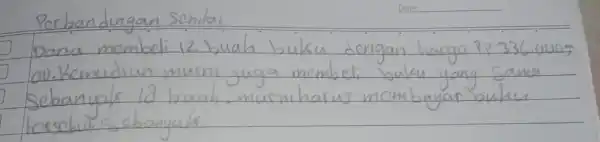 Date:
Perbandingan Senilai
Dana membeli 12 buah buku dengan harga Rp 336.000,
00. Kemudian murni juga membeli buku yang sama
Sebanyak 18 buah. murni harus membayar buku
tersebut sebanyak